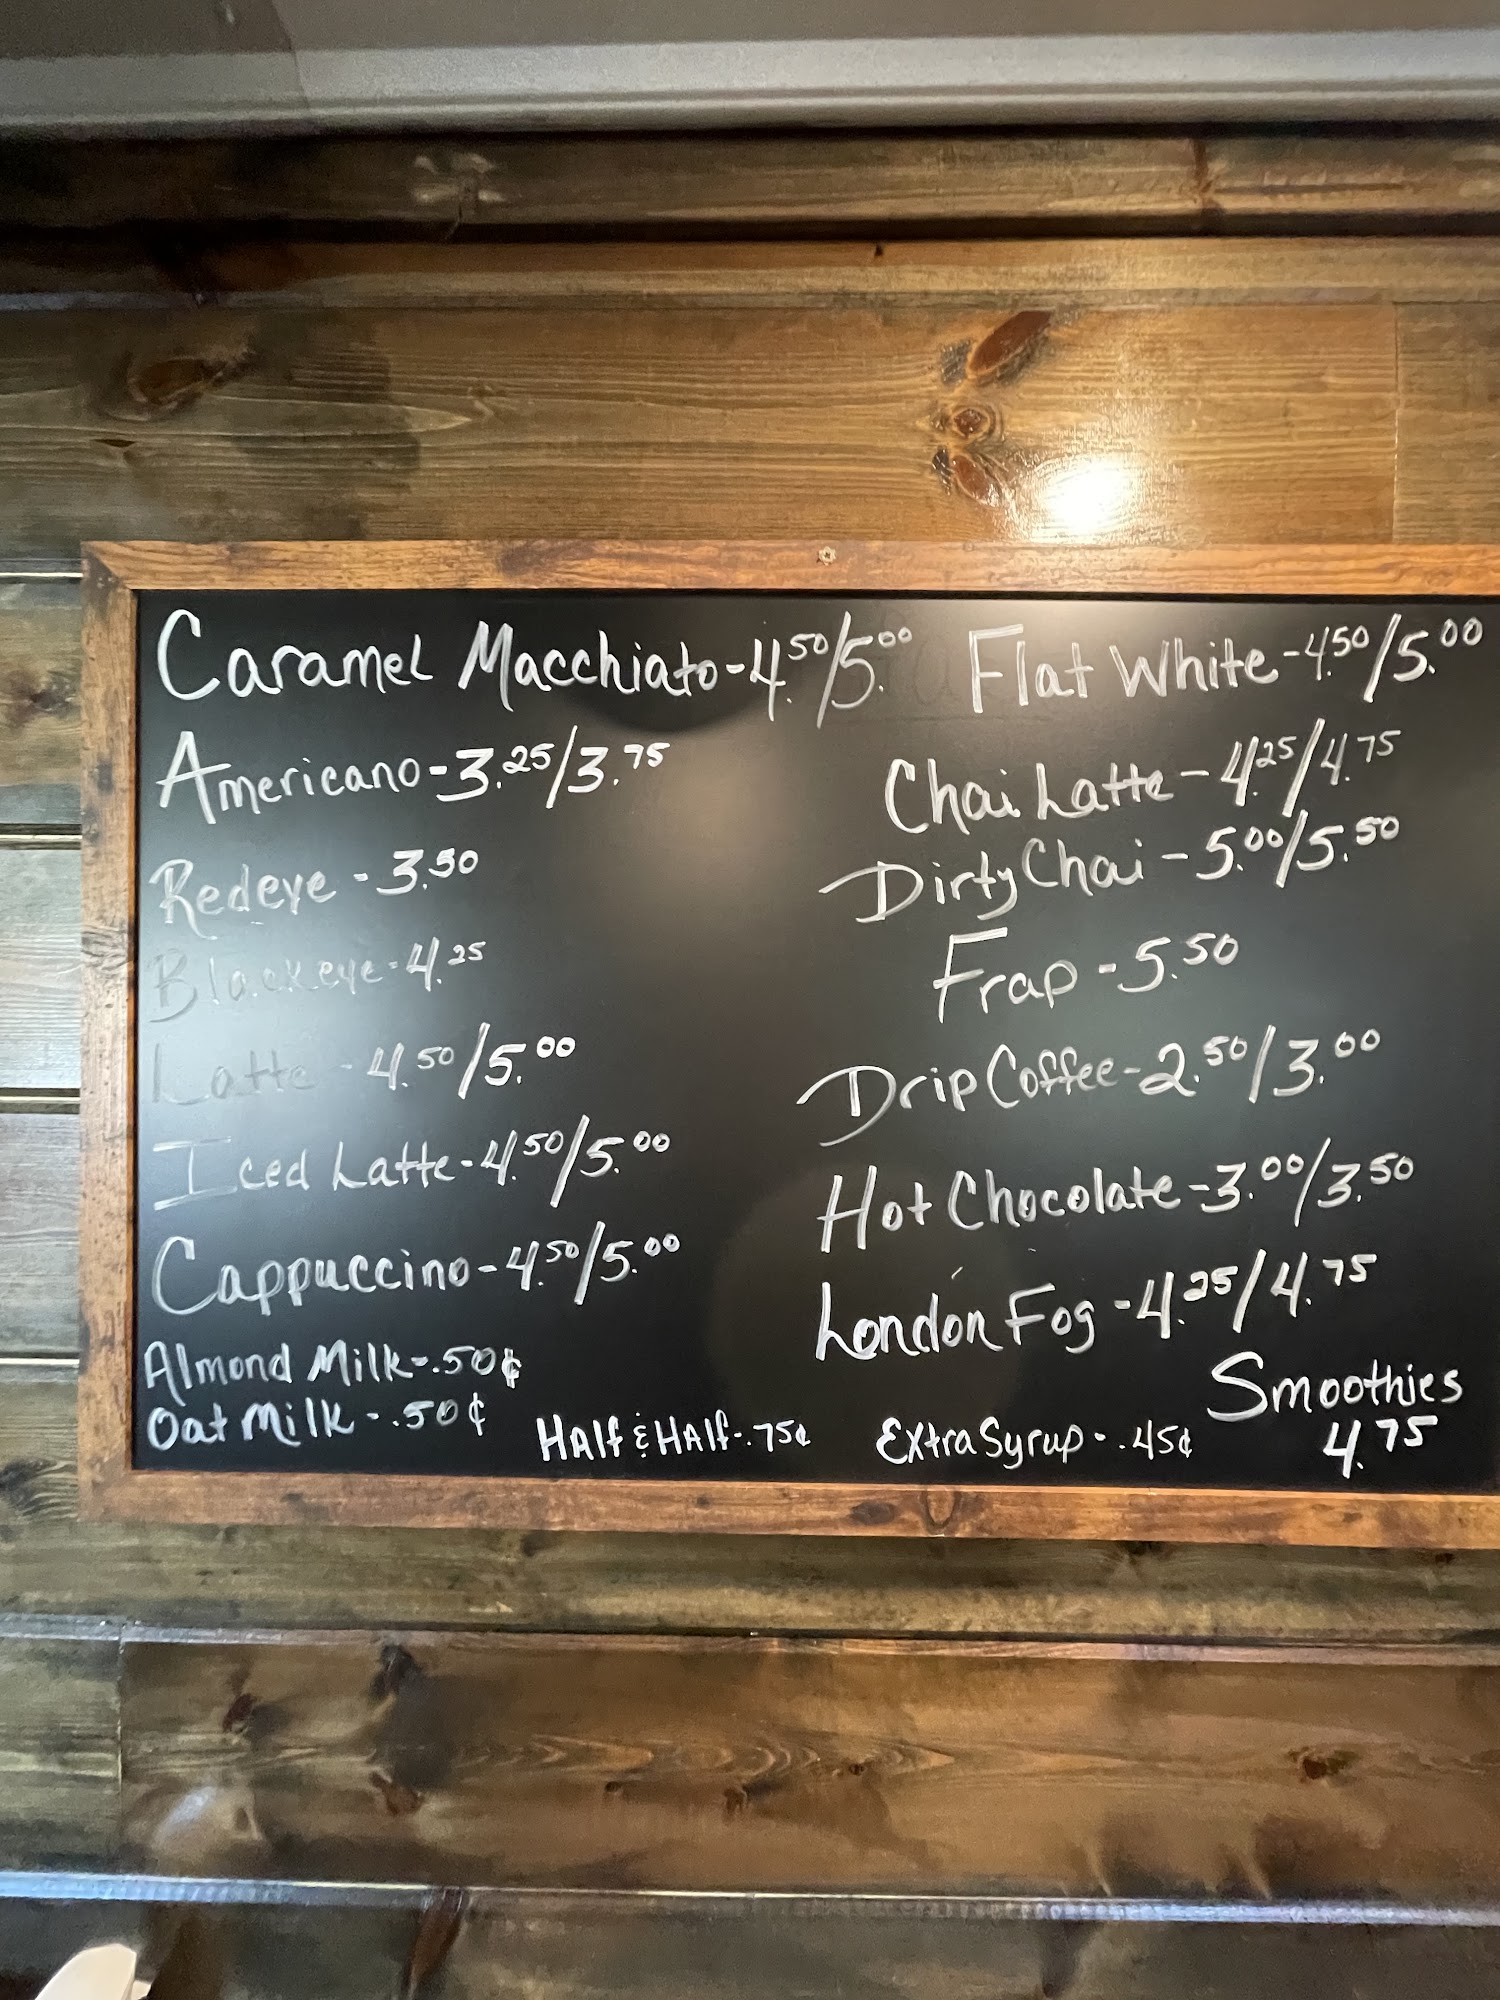 Caramel Macchiato - 4.50/5.00
Americano - 3.25/3.75
Redeye - 3.50
Blackeye - 4.25
Latte - 4.50/5.00
Iced Latte - 4.50/5.00
Cappuccino - 4.50/5.00
Almond Milk - .50¢
Oat Milk - .50¢
Half & Half - .75¢
Flat White - 4.50/5.00
Chai Latte - 4.25/4.75
Dirty Chai - 5.00/5.50
Frap - 5.50
Drip Coffee - 2.50/3.00
Hot Chocolate - 3.00/3.50
London Fog - 4.25/4.75
Smoothies
4.75
Extra Syrup - .45¢